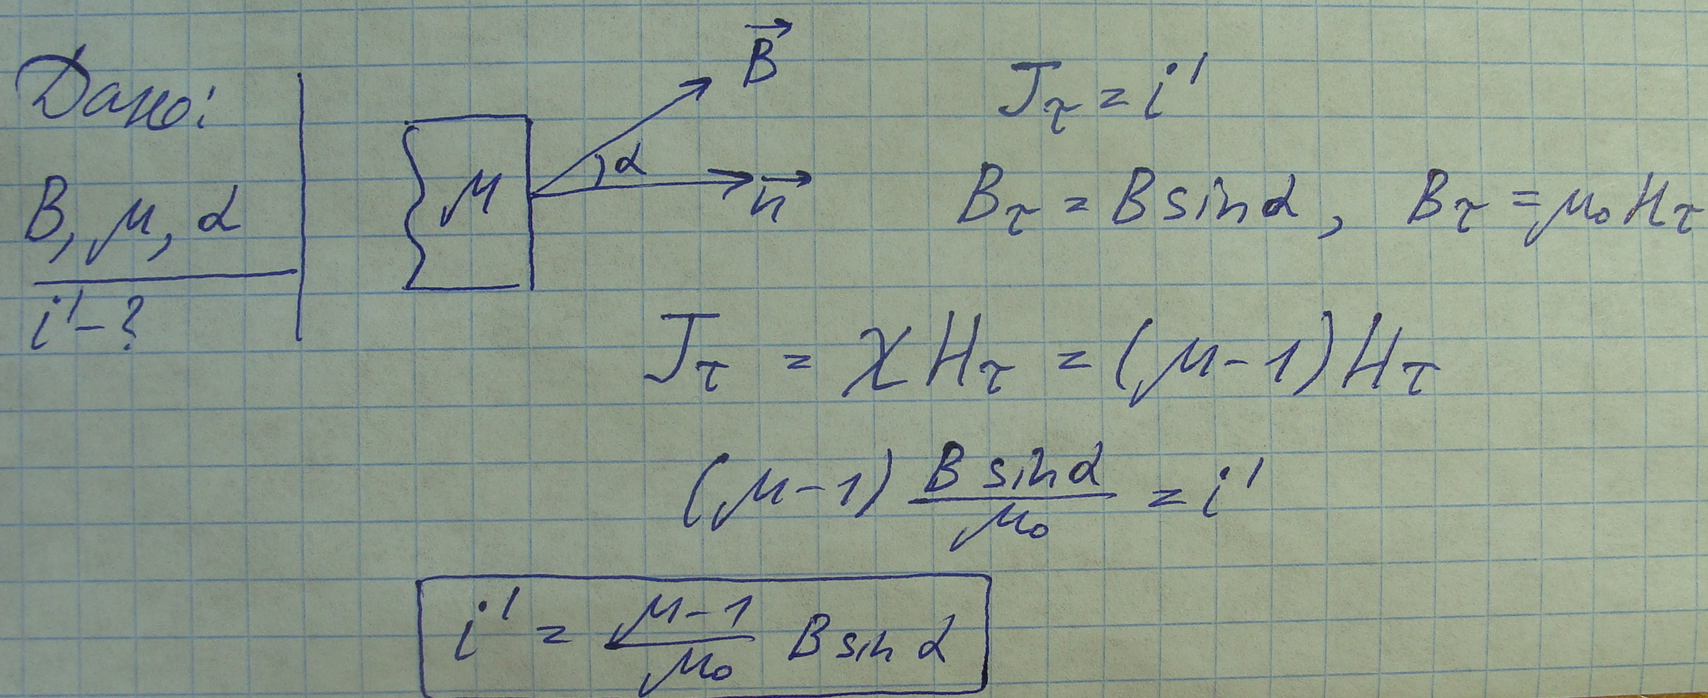 Дано:
B, μ, α
i' - ?
μ
α
B⃗
n⃗
J_τ = i'
B_τ = B sin α, B_τ = μ₀ H_τ
J_τ = χ H_τ = (μ - 1) H_τ
(μ - 1) B sin α / μ₀ = i'
i' = (μ - 1) / μ₀ B sin α